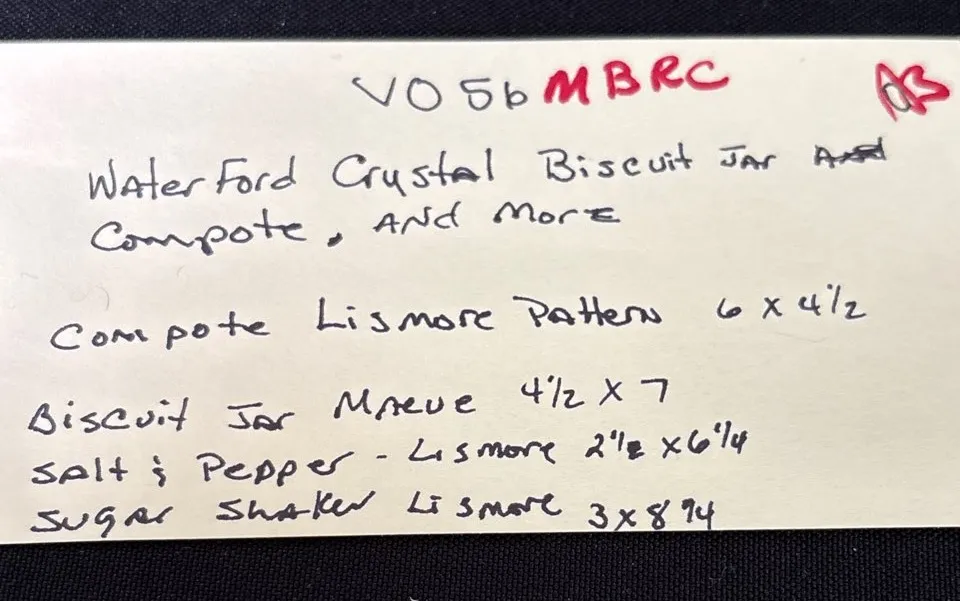 VO56 MBRC AB
Waterford Crystal Biscuit Jar
Compote, And More
Compote Lismore Pattern 6 x 4 1/2
Biscuit Jar Maeve 4 1/2 x 7
Salt & Pepper - Lismore 2 1/2 x 6 1/4
Sugar Shaker Lismore 3 x 8